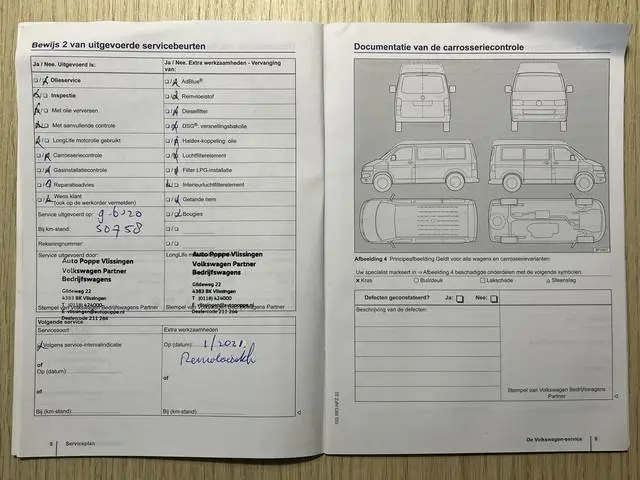 Bewijs 2 van uitgevoerde servicebeurten
Ja / Nee. Uitgevoerd is:
Olieservice
Inspectie
Met olie verversen
Met aanvullende controle
LongLife motorolie gebruikt
Carrosseriecontrole
Gasinstallatiecontrole
Reparatieadvies
Wens klant
(ook op de werkorder vermelden)
Service uitgevoerd op: 9-6-2020
Bij km-stand: 50758
Rekeningnummer:
Service uitgevoerd door:
Auto Poppe Vlissingen
Volkswagen Partner
Bedrijfswagens
Gildeweg 22
4383 BK Vlissingen
T (0118) 424000
E vlissingen@autopoppe.nl
Dealercode 211 264
Stempel van Volkswagen Bedrijfswagens Partner
Ja / Nee. Extra werkzaamheden - Vervanging
van:
AdBlue®
Remvloeistof
Dieselfilter
DSG®: versnellingsbakolie
Haldex-koppeling: olie
Luchtfilterelement
Filter LPG-installatie
Interieurluchtfilterelement
Getande riem
Bougies
LongLife
Auto Poppe Vlissingen
Volkswagen Partner
Bedrijfswagens
Gildeweg 22
4383 BK Vlissingen
T (0118) 424000
E vlissingen@autopoppe.nl
Dealercode 211 264
Stempel van Volkswagen Bedrijfswagens Partner
Volgende service
Servicesoort
Volgens service-intervalindicatie
of
Op (datum):
of
Bij (km-stand):
Extra werkzaamheden
Op (datum): 1/2021
Remvloeistof
of
Bij (km-stand):
8 Serviceplan
Documentatie van de carrosseriecontrole
Afbeelding 4 Principeafbeelding Geldt voor alle wagens en carrosserievarianten
Uw specialist markeert in ⇒ Afbeelding 4 beschadigde onderdelen met de volgende symbolen:
× Kras ○ Buil/deuk □ Lakschade △ Steenslag
Defecten geconstateerd? Ja: Nee:
Beschrijving van de defecten:
Stempel van Volkswagen Bedrijfswagens
Partner
De Volkswagen-service 9